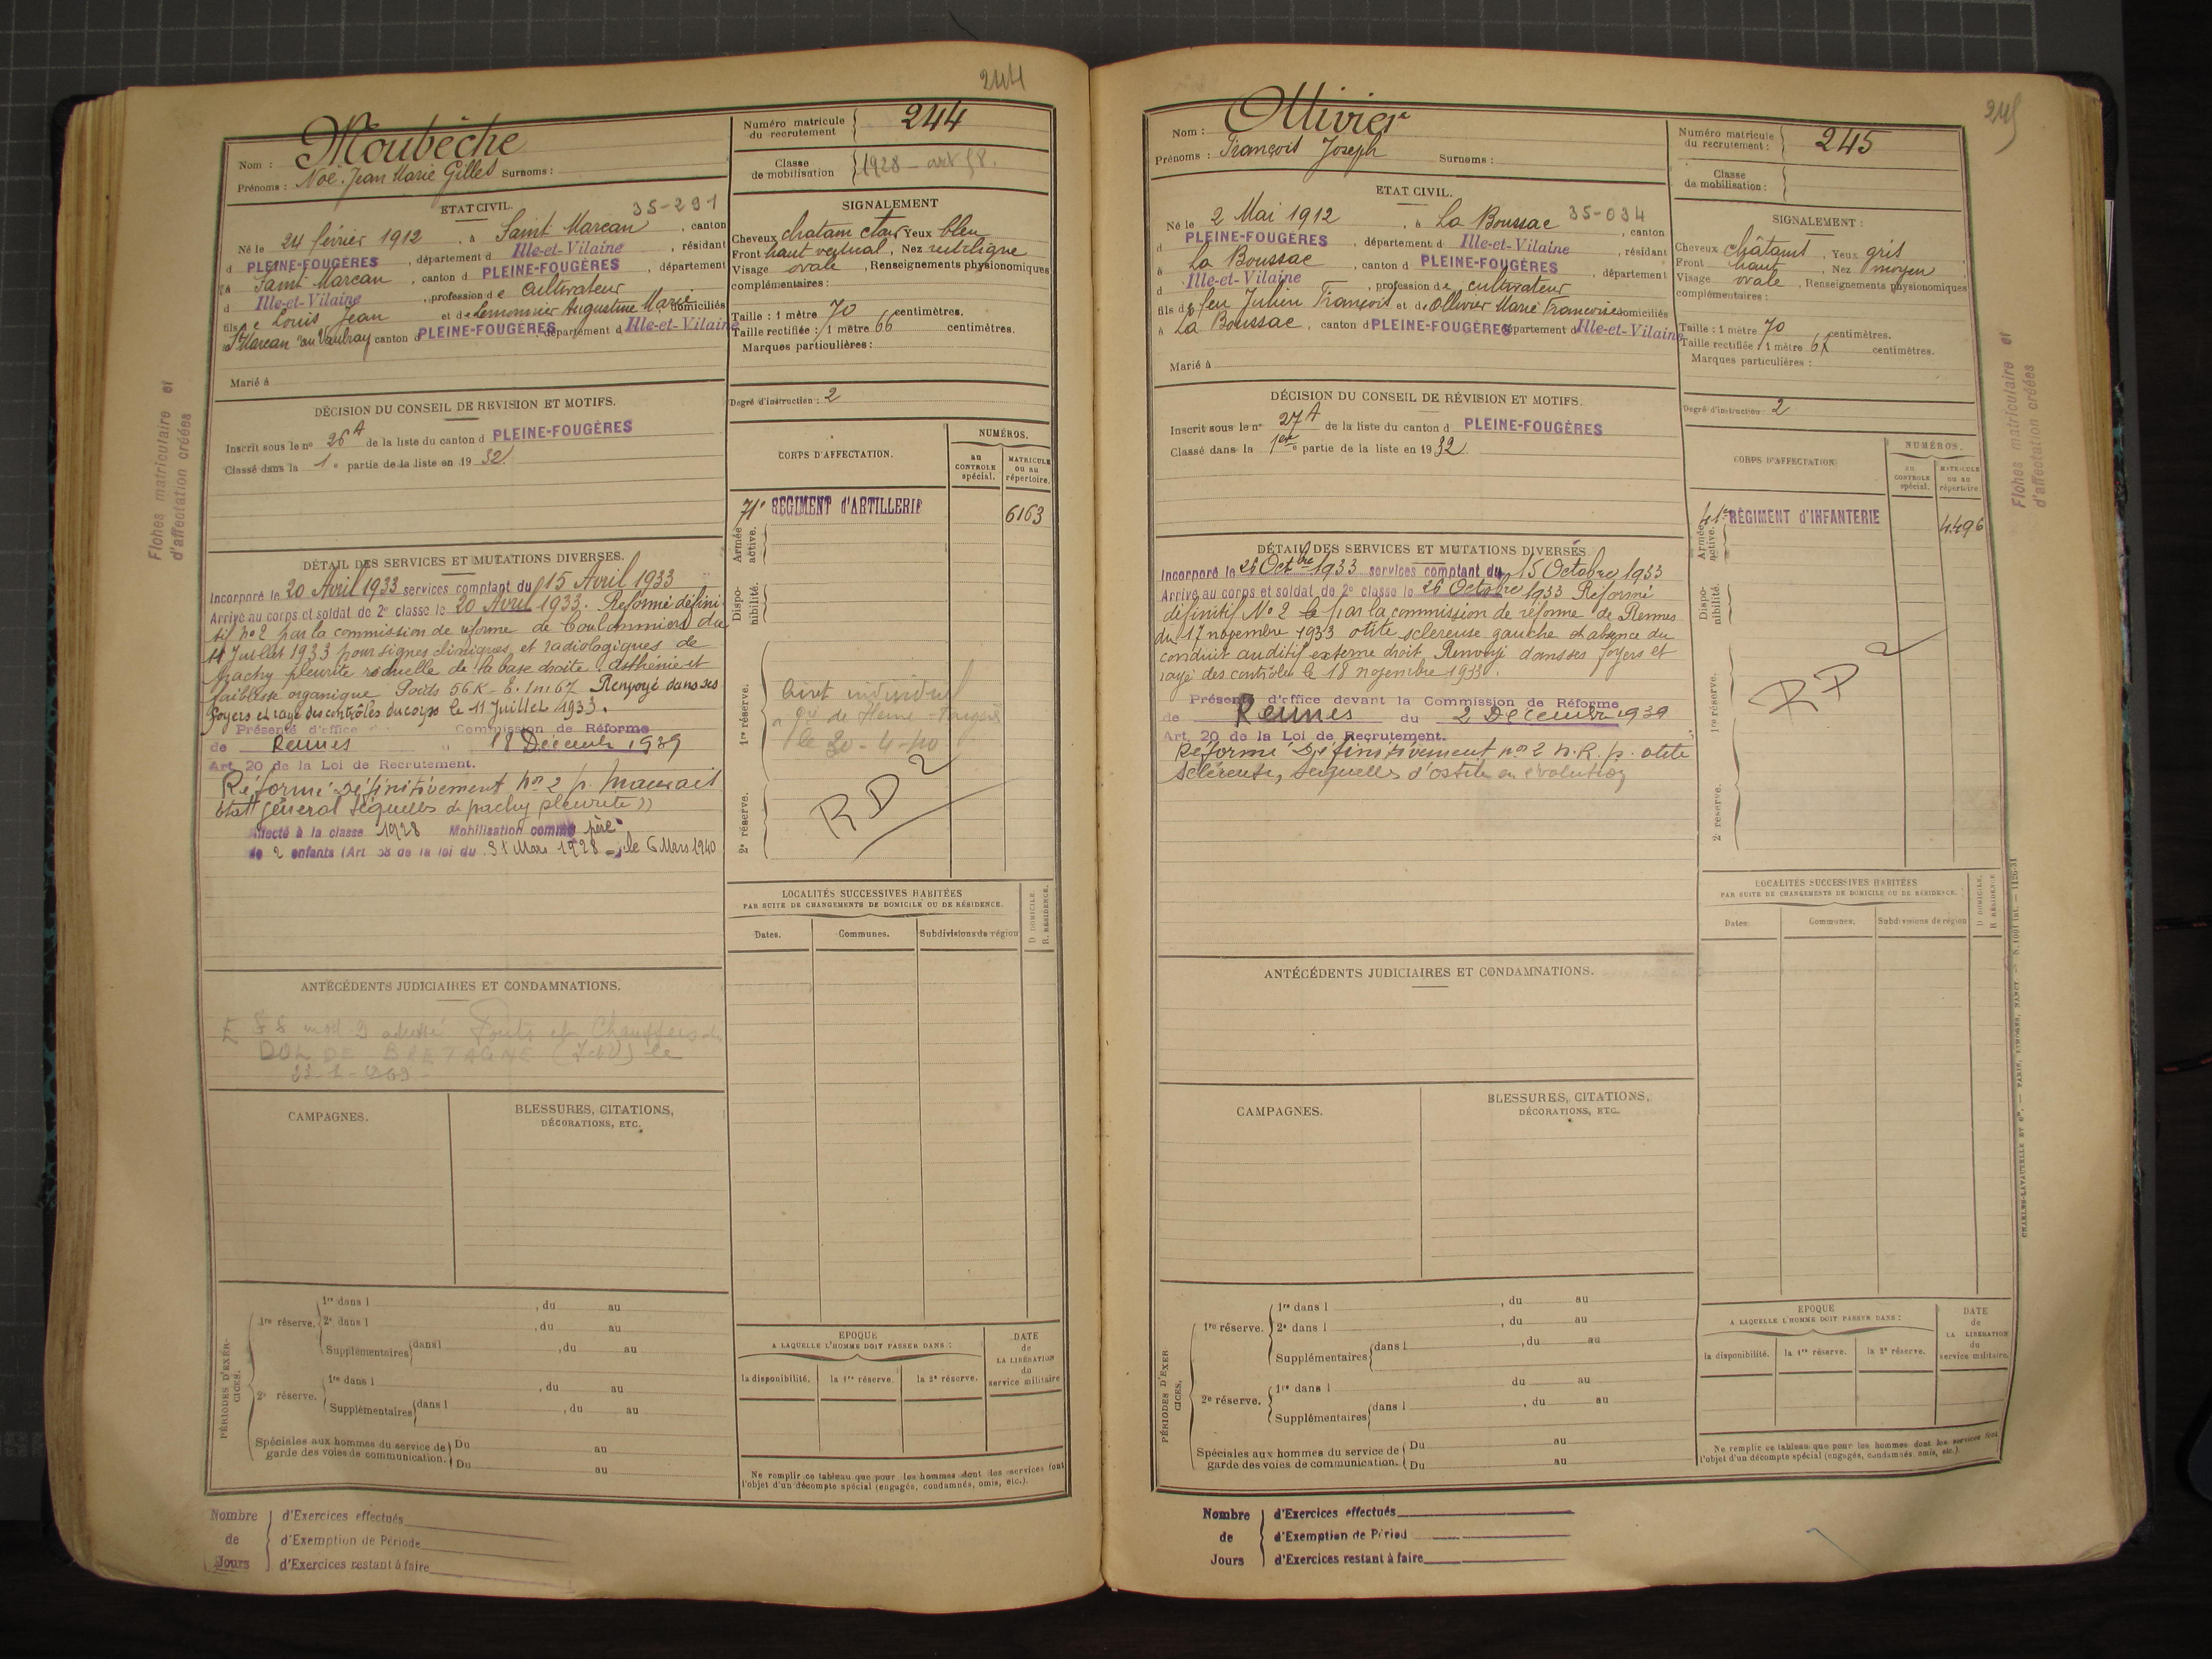 244
Nom : Moubèche
Prénoms : Noë. Jean Marie Gilles Surnoms :
Numéro matricule du recrutement { 244
Classe de mobilisation { 1928 - art 58.
ETAT CIVIL.
35-291
Né le 24 février 1912, à Saint Marcan, canton
d PLEINE-FOUGÈRES, département d Ille-et-Vilaine, résidant
à Saint Marcan, canton d PLEINE-FOUGÈRES, département
d Ille-et-Vilaine, profession de cultivateur
fils de Louis Jean et de Lemonnier Augustine Marie domiciliés
à St Marcan "au Vaulray canton d PLEINE-FOUGÈRES, département d Ille-et-Vilaine
Marié à
SIGNALEMENT
Cheveux chatain clair Yeux bleu
Front haut vertical, Nez rectiligne
Visage ovale, Renseignements physionomiques
complémentaires :
Taille : 1 mètre 70 centimètres.
Taille rectifiée : 1 mètre 66 centimètres.
Marques particulières :
Degré d'instruction : 2
DÉCISION DU CONSEIL DE REVISION ET MOTIFS.
Inscrit sous le no 26 A de la liste du canton d PLEINE-FOUGÈRES
Classé dans la 1e partie de la liste en 1932.
CORPS D'AFFECTATION.
NUMÉROS.
au CONTROLE spécial.
MATRICULE ou au répertoire.
Armée active.
71e REGIMENT d'ARTILLERIE 6163
Dispo-nibilité.
1re réserve.
2e réserve.
le 20-4-40
RD 2
DÉTAIL DES SERVICES ET MUTATIONS DIVERSES.
Incorporé le 20 Avril 1933 services comptant du 15 Avril 1933
Arrivé au corps et soldat de 2e classe le 20 Avril 1933. Réformé défini
tif no 2 par la commission de réforme de Coulommiers du
11 Juillet 1933 pour signes cliniques et radiologiques de
pachy pleurite résiduelle de la base droite. Asthénie et
faiblesse organique Poids 56K - T. 1m67 Renvoyé dans ses
foyers et rayé des contrôles du corps le 11 Juillet 1933.
Présenté d'office Commission de Réforme
de Rennes 18 Décembre 1939
Art. 20 de la Loi de Recrutement.
Réformé définitivement no 2 p. mauvais
état général séquelles de pachy pleurite "
Affecté à la classe 1928 Mobilisation comme père
de 2 enfants (Art 58 de la loi du 31 Mars 1928 - le 6 Mars 1940
LOCALITÉS SUCCESSIVES HABITÉES
PAR SUITE DE CHANGEMENTS DE DOMICILE OU DE RÉSIDENCE.
D. DOMICILE. R. RÉSIDENCE.
Dates. Communes. Subdivisions de région
ANTÉCÉDENTS JUDICIAIRES ET CONDAMNATIONS.
DOL DE BRETAGNE
CAMPAGNES.
BLESSURES, CITATIONS,
DÉCORATIONS, ETC.
PÉRIODES D'EXERCICES.
1re réserve. 1re dans l , du au
2e dans l , du au
Supplémentaires dans l , du au
2e réserve. 1re dans l , du au
Supplémentaires dans l , du au
Spéciales aux hommes du service de garde des voies de communication. Du au
Du au
EPOQUE
A LAQUELLE L'HOMME DOIT PASSER DANS :
la disponibilité. la 1re réserve. la 2e réserve.
DATE de LA LIBÉRATION du service militaire
Ne remplir ce tableau que pour les hommes dont les services font
l'objet d'un décompte spécial (engagés, condamnés, omis, etc.).
Nombre de Jours
d'Exercices effectués
d'Exemption de Période
d'Exercices restant à faire
Fiches matriculaire et
d'affectation créées
245
Nom : Ollivier
Prénoms : François Joseph Surnoms :
Numéro matricule du recrutement : { 245
Classe de mobilisation : {
ETAT CIVIL.
35-034
Né le 2 Mai 1912, à La Boussac, canton
d PLEINE-FOUGÈRES, département d Ille-et-Vilaine, résidant
à La Boussac, canton d PLEINE-FOUGÈRES, département
d Ille-et-Vilaine, profession de cultivateur
fils de feu Julien François et de Ollivier Marie Françoise domiciliés
à La Boussac, canton d PLEINE-FOUGÈRES département d Ille-et-Vilaine
Marié à
SIGNALEMENT :
Cheveux châtains, Yeux gris
Front haut, Nez moyen
Visage ovale, Renseignements physionomiques
complémentaires :
Taille : 1 mètre 70 centimètres.
Taille rectifiée : 1 mètre 67 centimètres.
Marques particulières :
Degré d'instruction : 2
DÉCISION DU CONSEIL DE RÉVISION ET MOTIFS.
Inscrit sous le no 27 A de la liste du canton d PLEINE-FOUGÈRES
Classé dans la 1ère partie de la liste en 1932.
CORPS D'AFFECTATION
NUMÉROS.
AU CONTROLE spécial.
MATRICULE ou au répertoire
Armée active.
41e RÉGIMENT d'INFANTERIE 4.496
Dispo-nibilité.
1re réserve.
2e réserve.
RD 2
DÉTAIL DES SERVICES ET MUTATIONS DIVERSES
Incorporé le 26 Octbre 1933 services comptant du 15 Octobre 1933
Arrivé au corps et soldat de 2e classe le 26 Octobre 1933 Réformé
définitif No 2 le par la commission de réforme de Rennes
du 17 novembre 1933 otite scléreuse gauche et absence du
conduit auditif externe droit. Renvoyé dans ses foyers et
rayé des contrôles le 18 novembre 1933.
Présenté d'office devant la Commission de Réforme
de Rennes du 2 Décembre 1939
Art. 20 de la Loi de Recrutement.
Réformé définitivement no 2 N.R. p. otite
scléreuse, séquelles d'ostéite en évolution
LOCALITÉS SUCCESSIVES HABITÉES
PAR SUITE DE CHANGEMENTS DE DOMICILE OU DE RÉSIDENCE.
D DOMICILE. R RÉSIDENCE
Dates. Communes. Subdivisions de région
ANTÉCÉDENTS JUDICIAIRES ET CONDAMNATIONS.
CAMPAGNES.
BLESSURES, CITATIONS,
DÉCORATIONS, ETC.
PÉRIODES D'EXERCICES.
1re réserve. 1re dans l , du au
2e dans l , du au
Supplémentaires dans l , du au
2e réserve. 1re dans l du au
Supplémentaires dans l , du au
Spéciales aux hommes du service de garde des voies de communication. Du au
Du au
EPOQUE
A LAQUELLE L'HOMME DOIT PASSER DANS :
la disponibilité. la 1re réserve. la 2e réserve.
DATE de LA LIBÉRATION du service militaire.
Ne remplir ce tableau que pour les hommes dont les services font
l'objet d'un décompte spécial (engagés, condamnés omis, etc.)
Nombre de Jours
d'Exercices effectués
d'Exemption de Périod
d'Exercices restant à faire
Fiches matriculaire et
d'affectation créées
CHARLES-LAVAUZELLE ET Cie. — PARIS, LIMOGES, NANCY